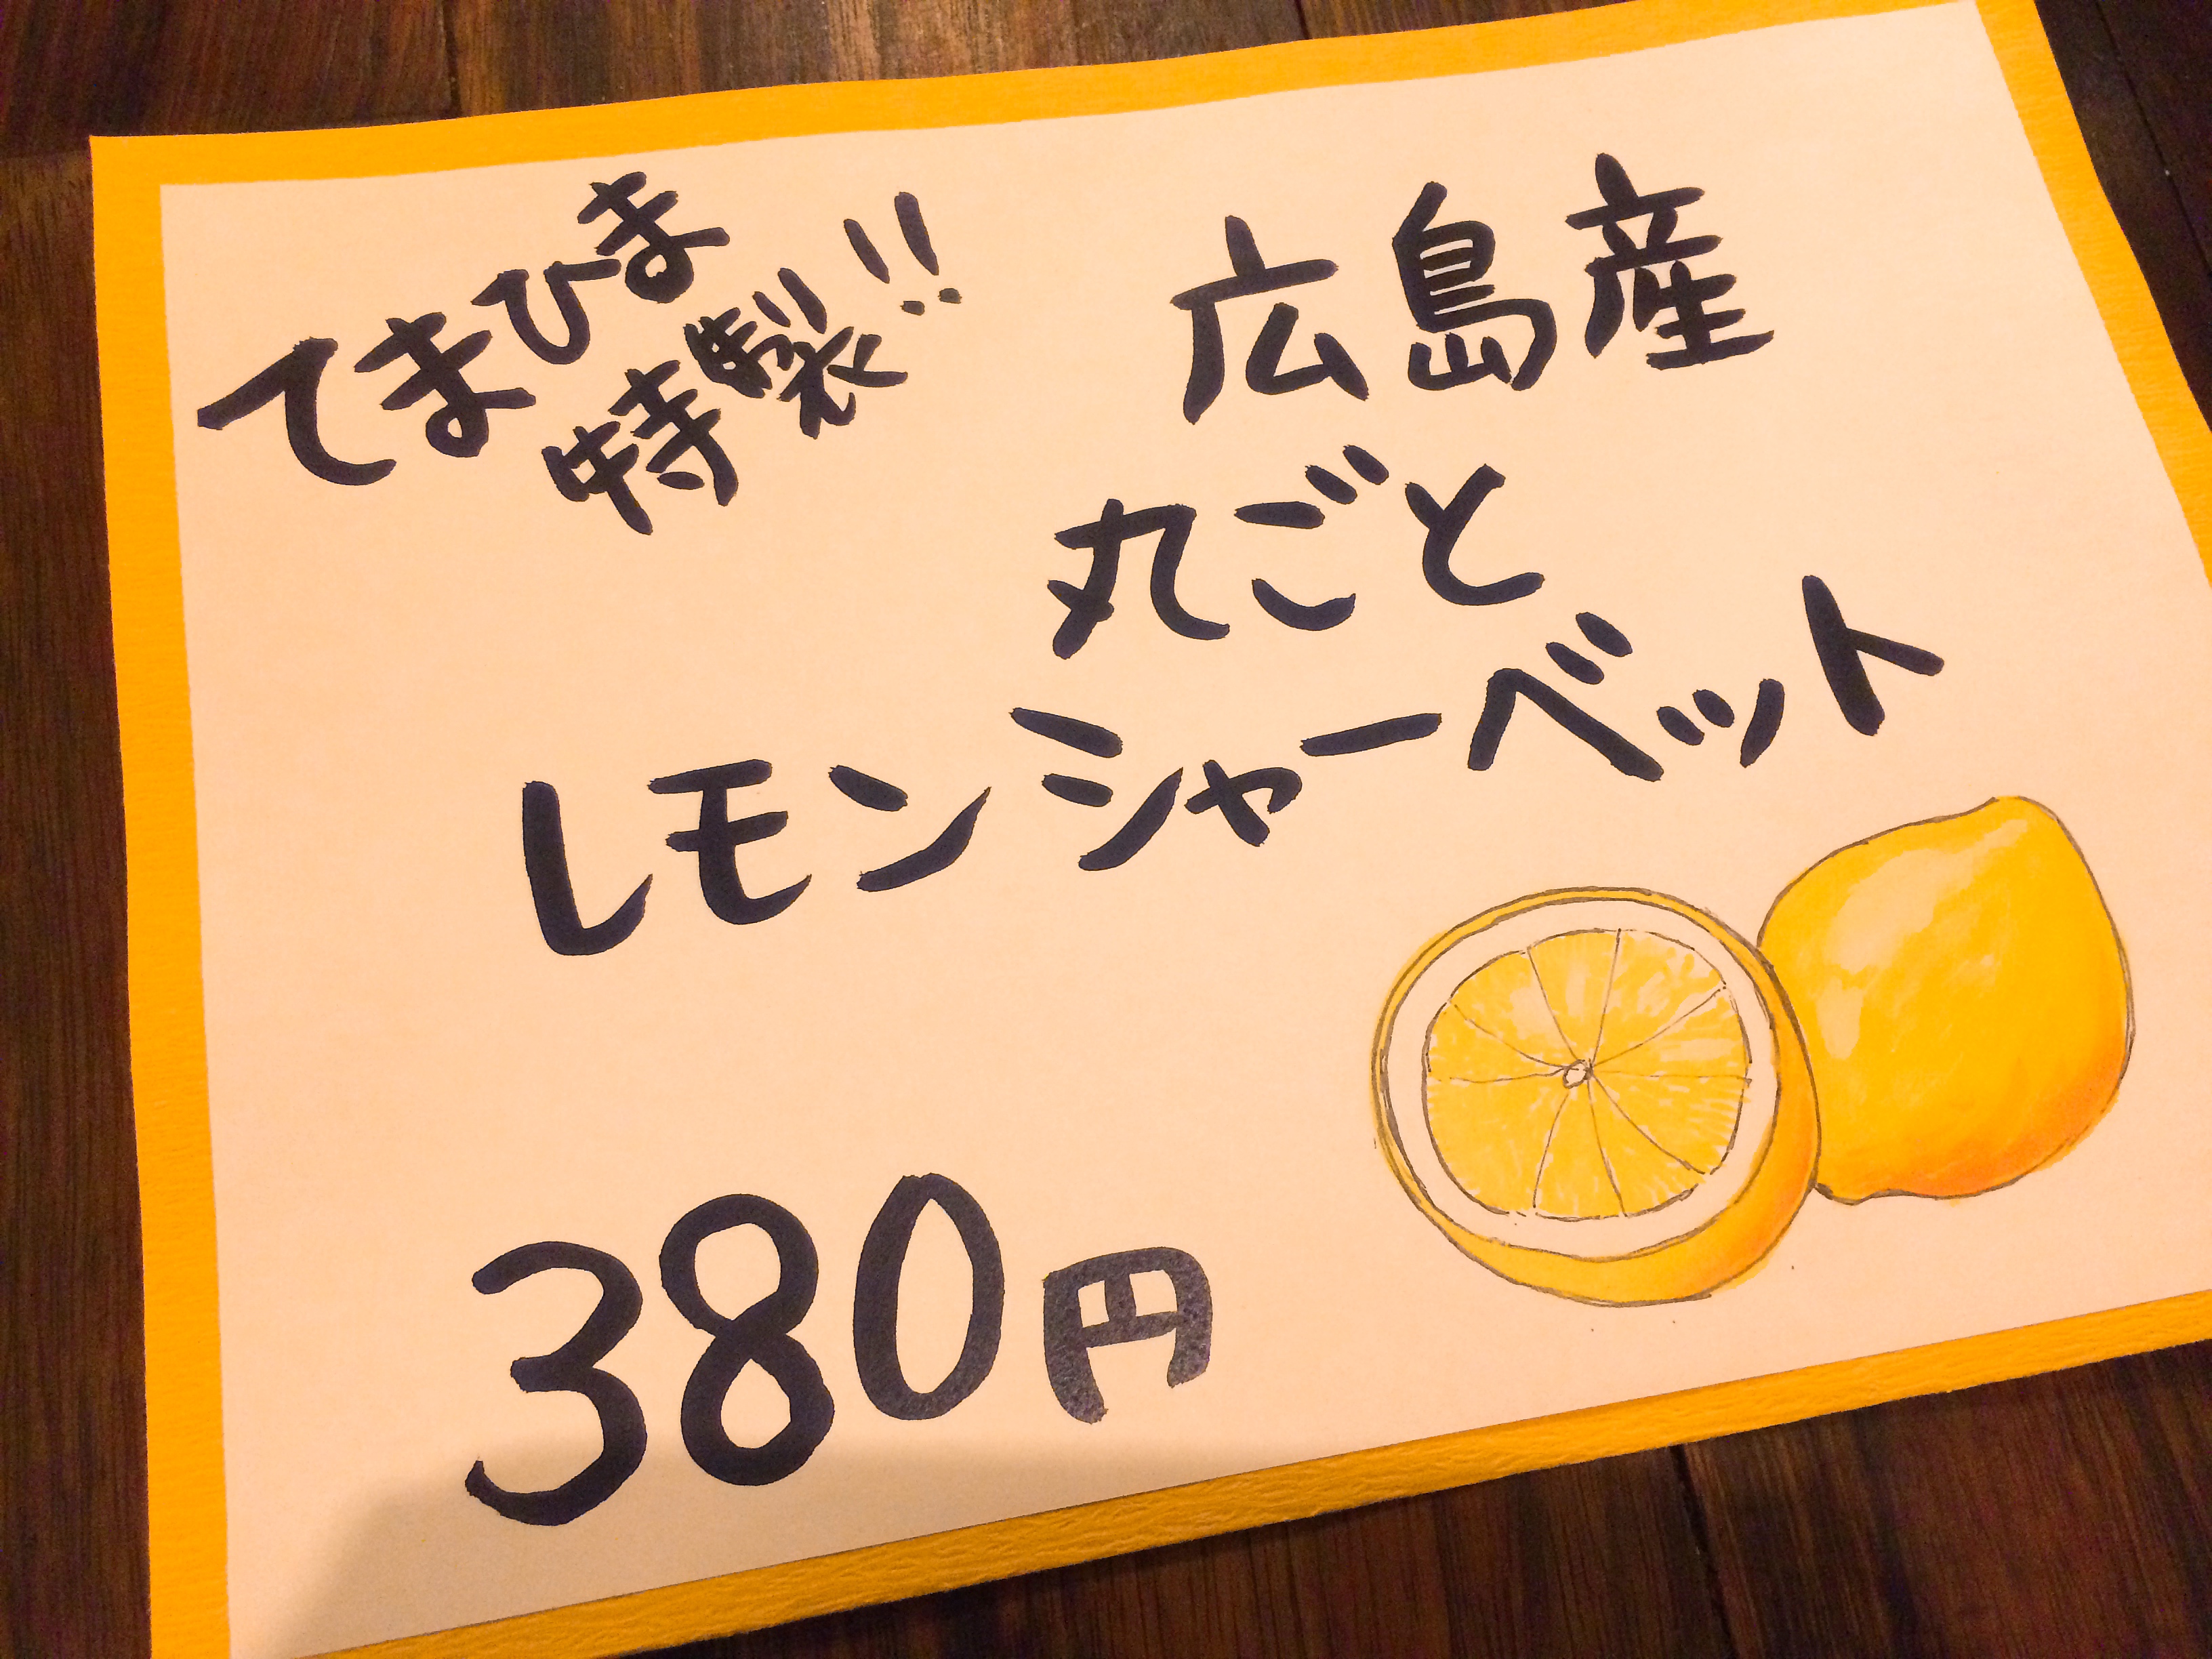 てまひま
特製!!
広島産
丸ごと
レモンシャーベット
380円